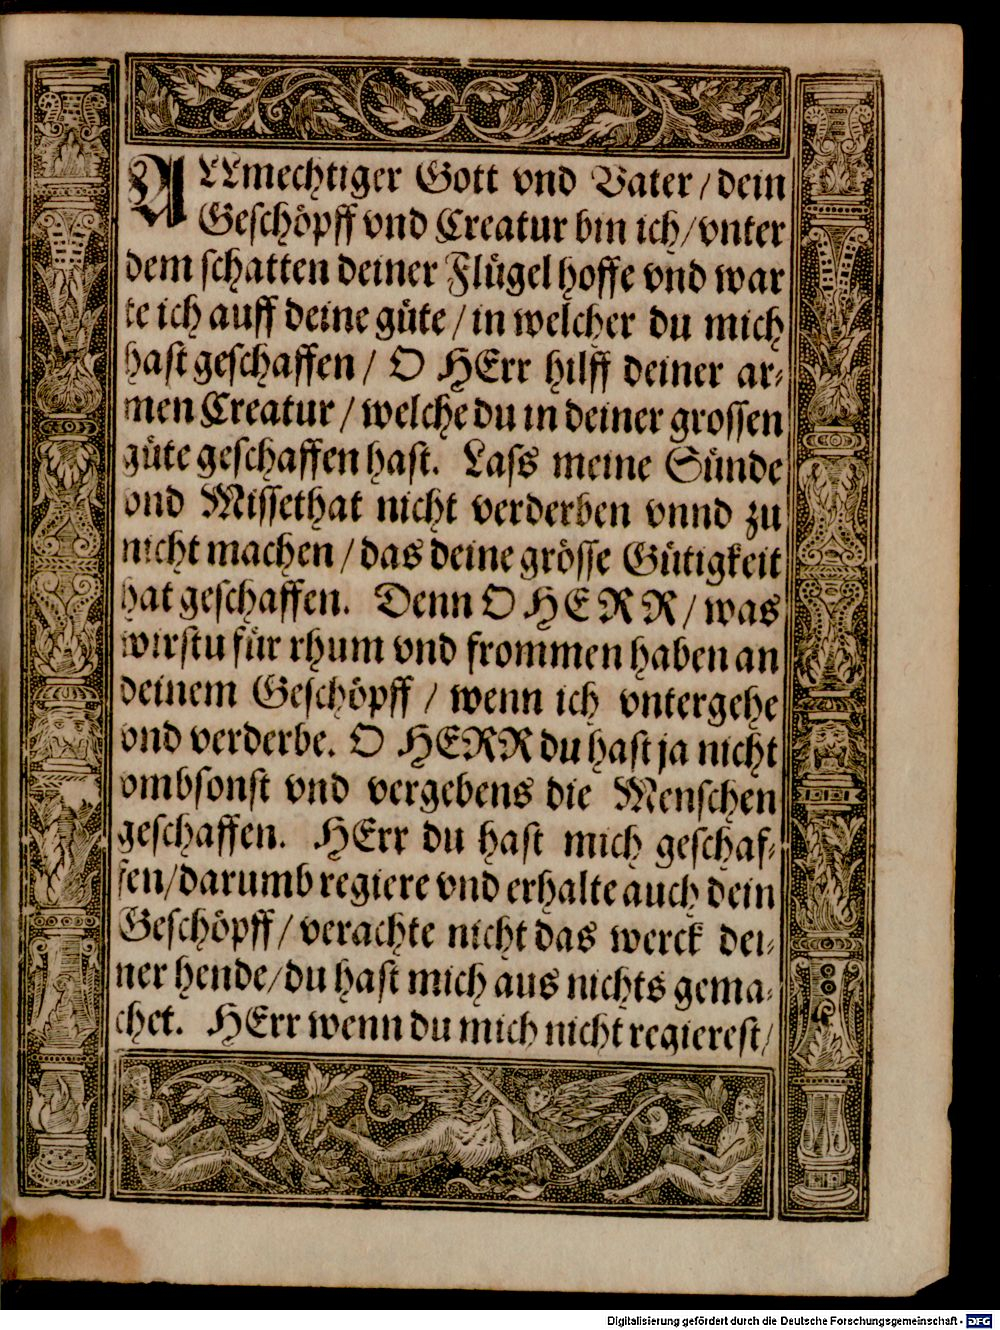 ALLmechtiger Gott vnd Vater / dein
Geschöpff vnd Creatur bin ich / vnter
dem schatten deiner Flügel hoffe vnd war
te ich auff deine güte / in welcher du mich
hast geschaffen / O HErr hilff deiner ar-
men Creatur / welche du in deiner grossen
güte geschaffen hast. Lass meine Sünde
vnd Missethat nicht verderben vnnd zu
nicht machen / das deine grösse Gütigkeit
hat geschaffen. Denn O HERR / was
wirstu für rhum vnd frommen haben an
deinem Geschöpff / wenn ich vntergehe
vnd verderbe. O HERR du hast ja nicht
vmbsonst vnd vergebens die Menschen
geschaffen. HErr du hast mich geschaf-
fen / darumb regiere vnd erhalte auch dein
Geschöpff / verachte nicht das werck dei-
ner hende / du hast mich aus nichts gema-
chet. HErr wenn du mich nicht regierest /
Digitalisierung gefördert durch die Deutsche Forschungsgemeinschaft - DFG